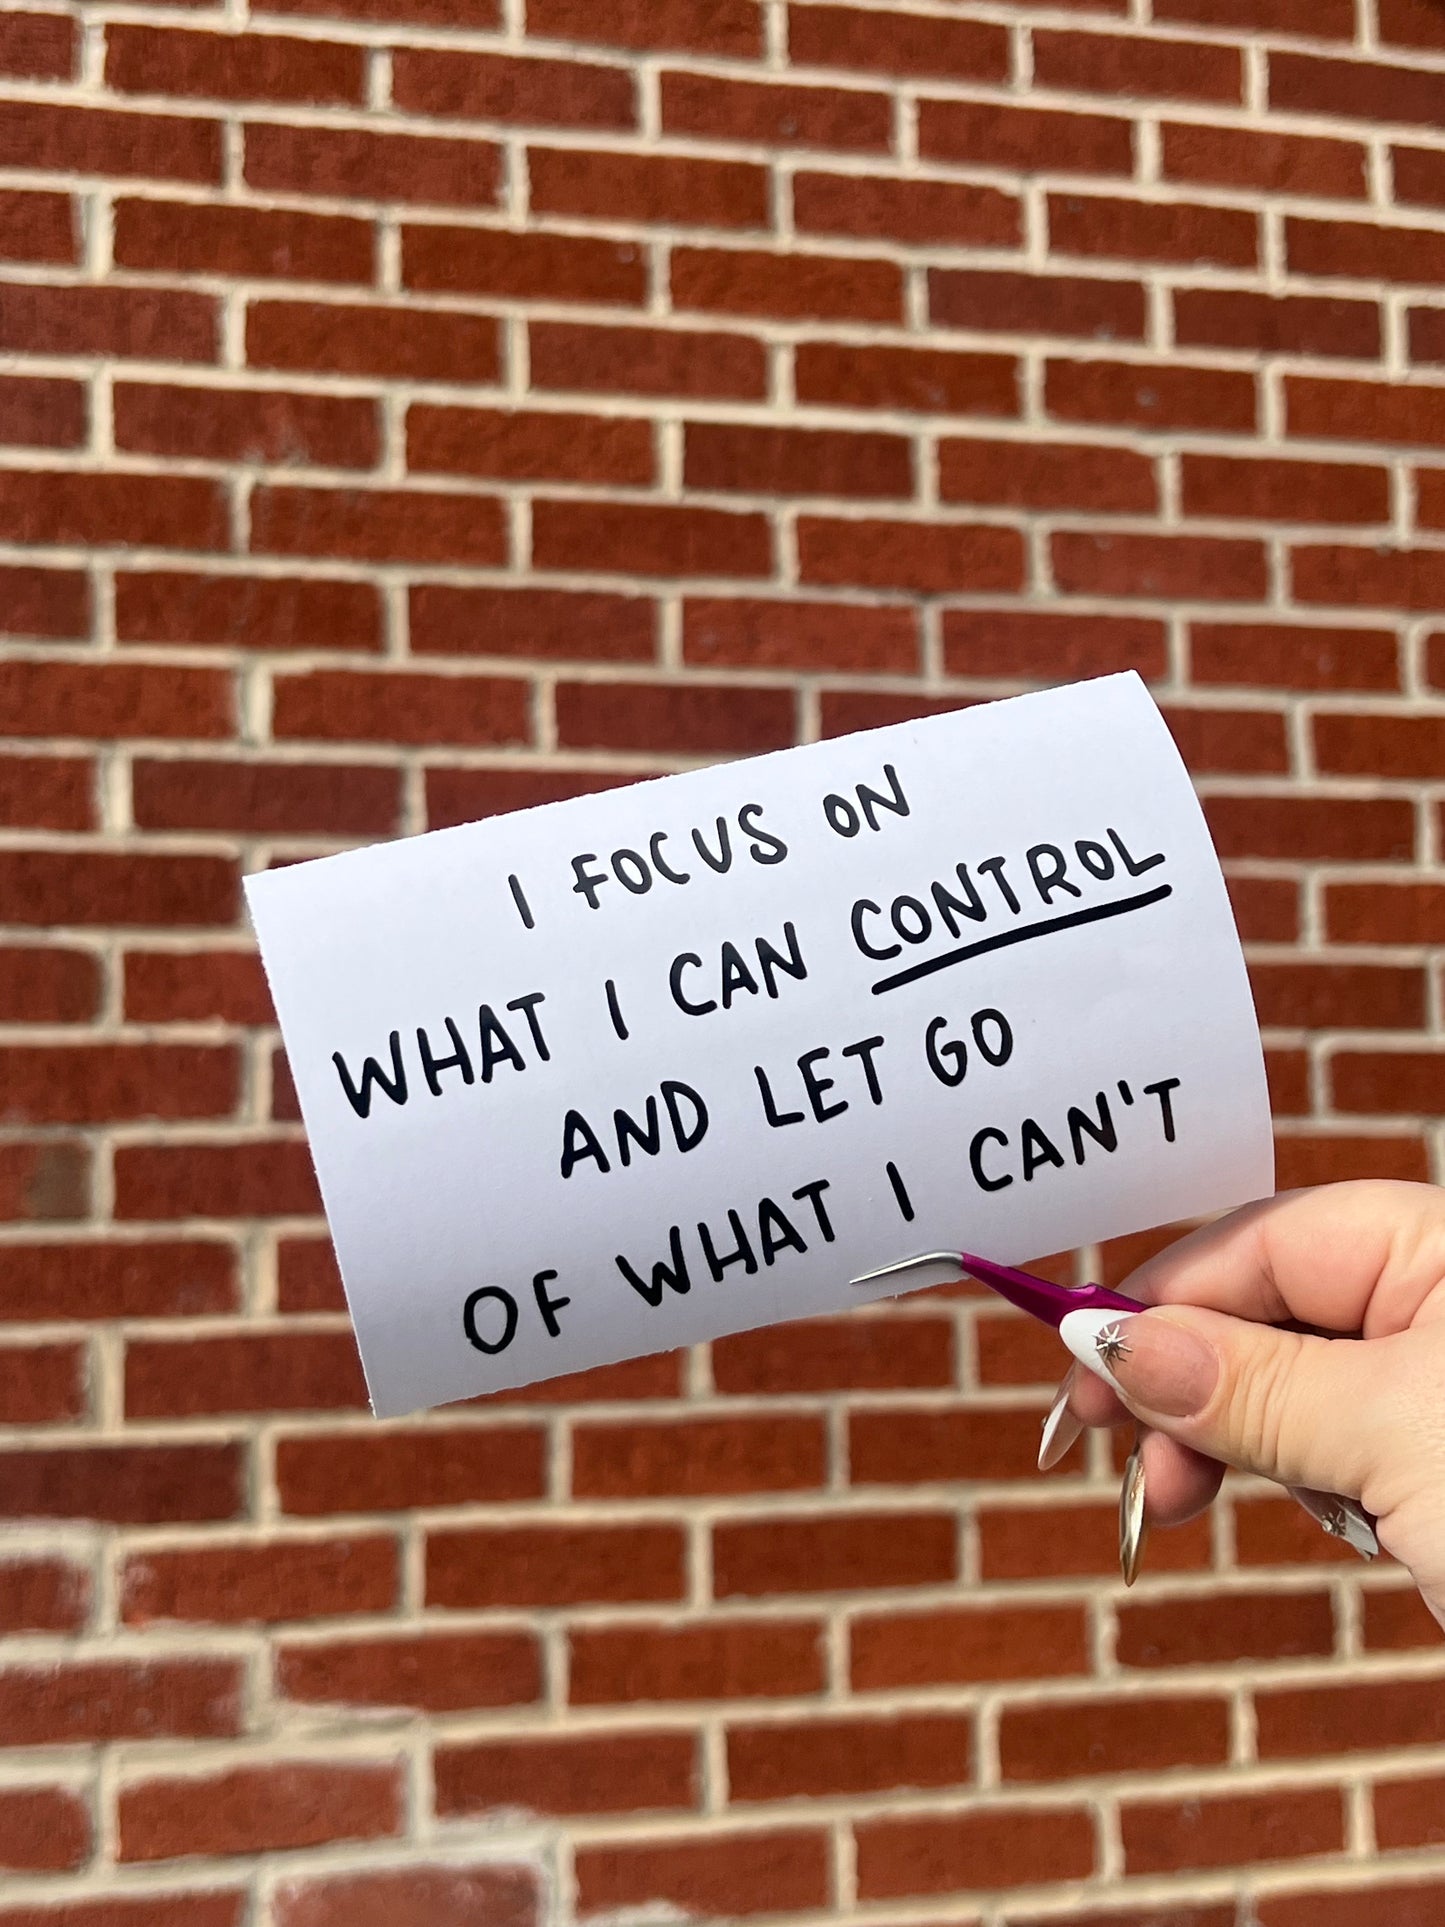 I FOCUS ON
WHAT I CAN CONTROL
AND LET GO
OF WHAT I CAN'T